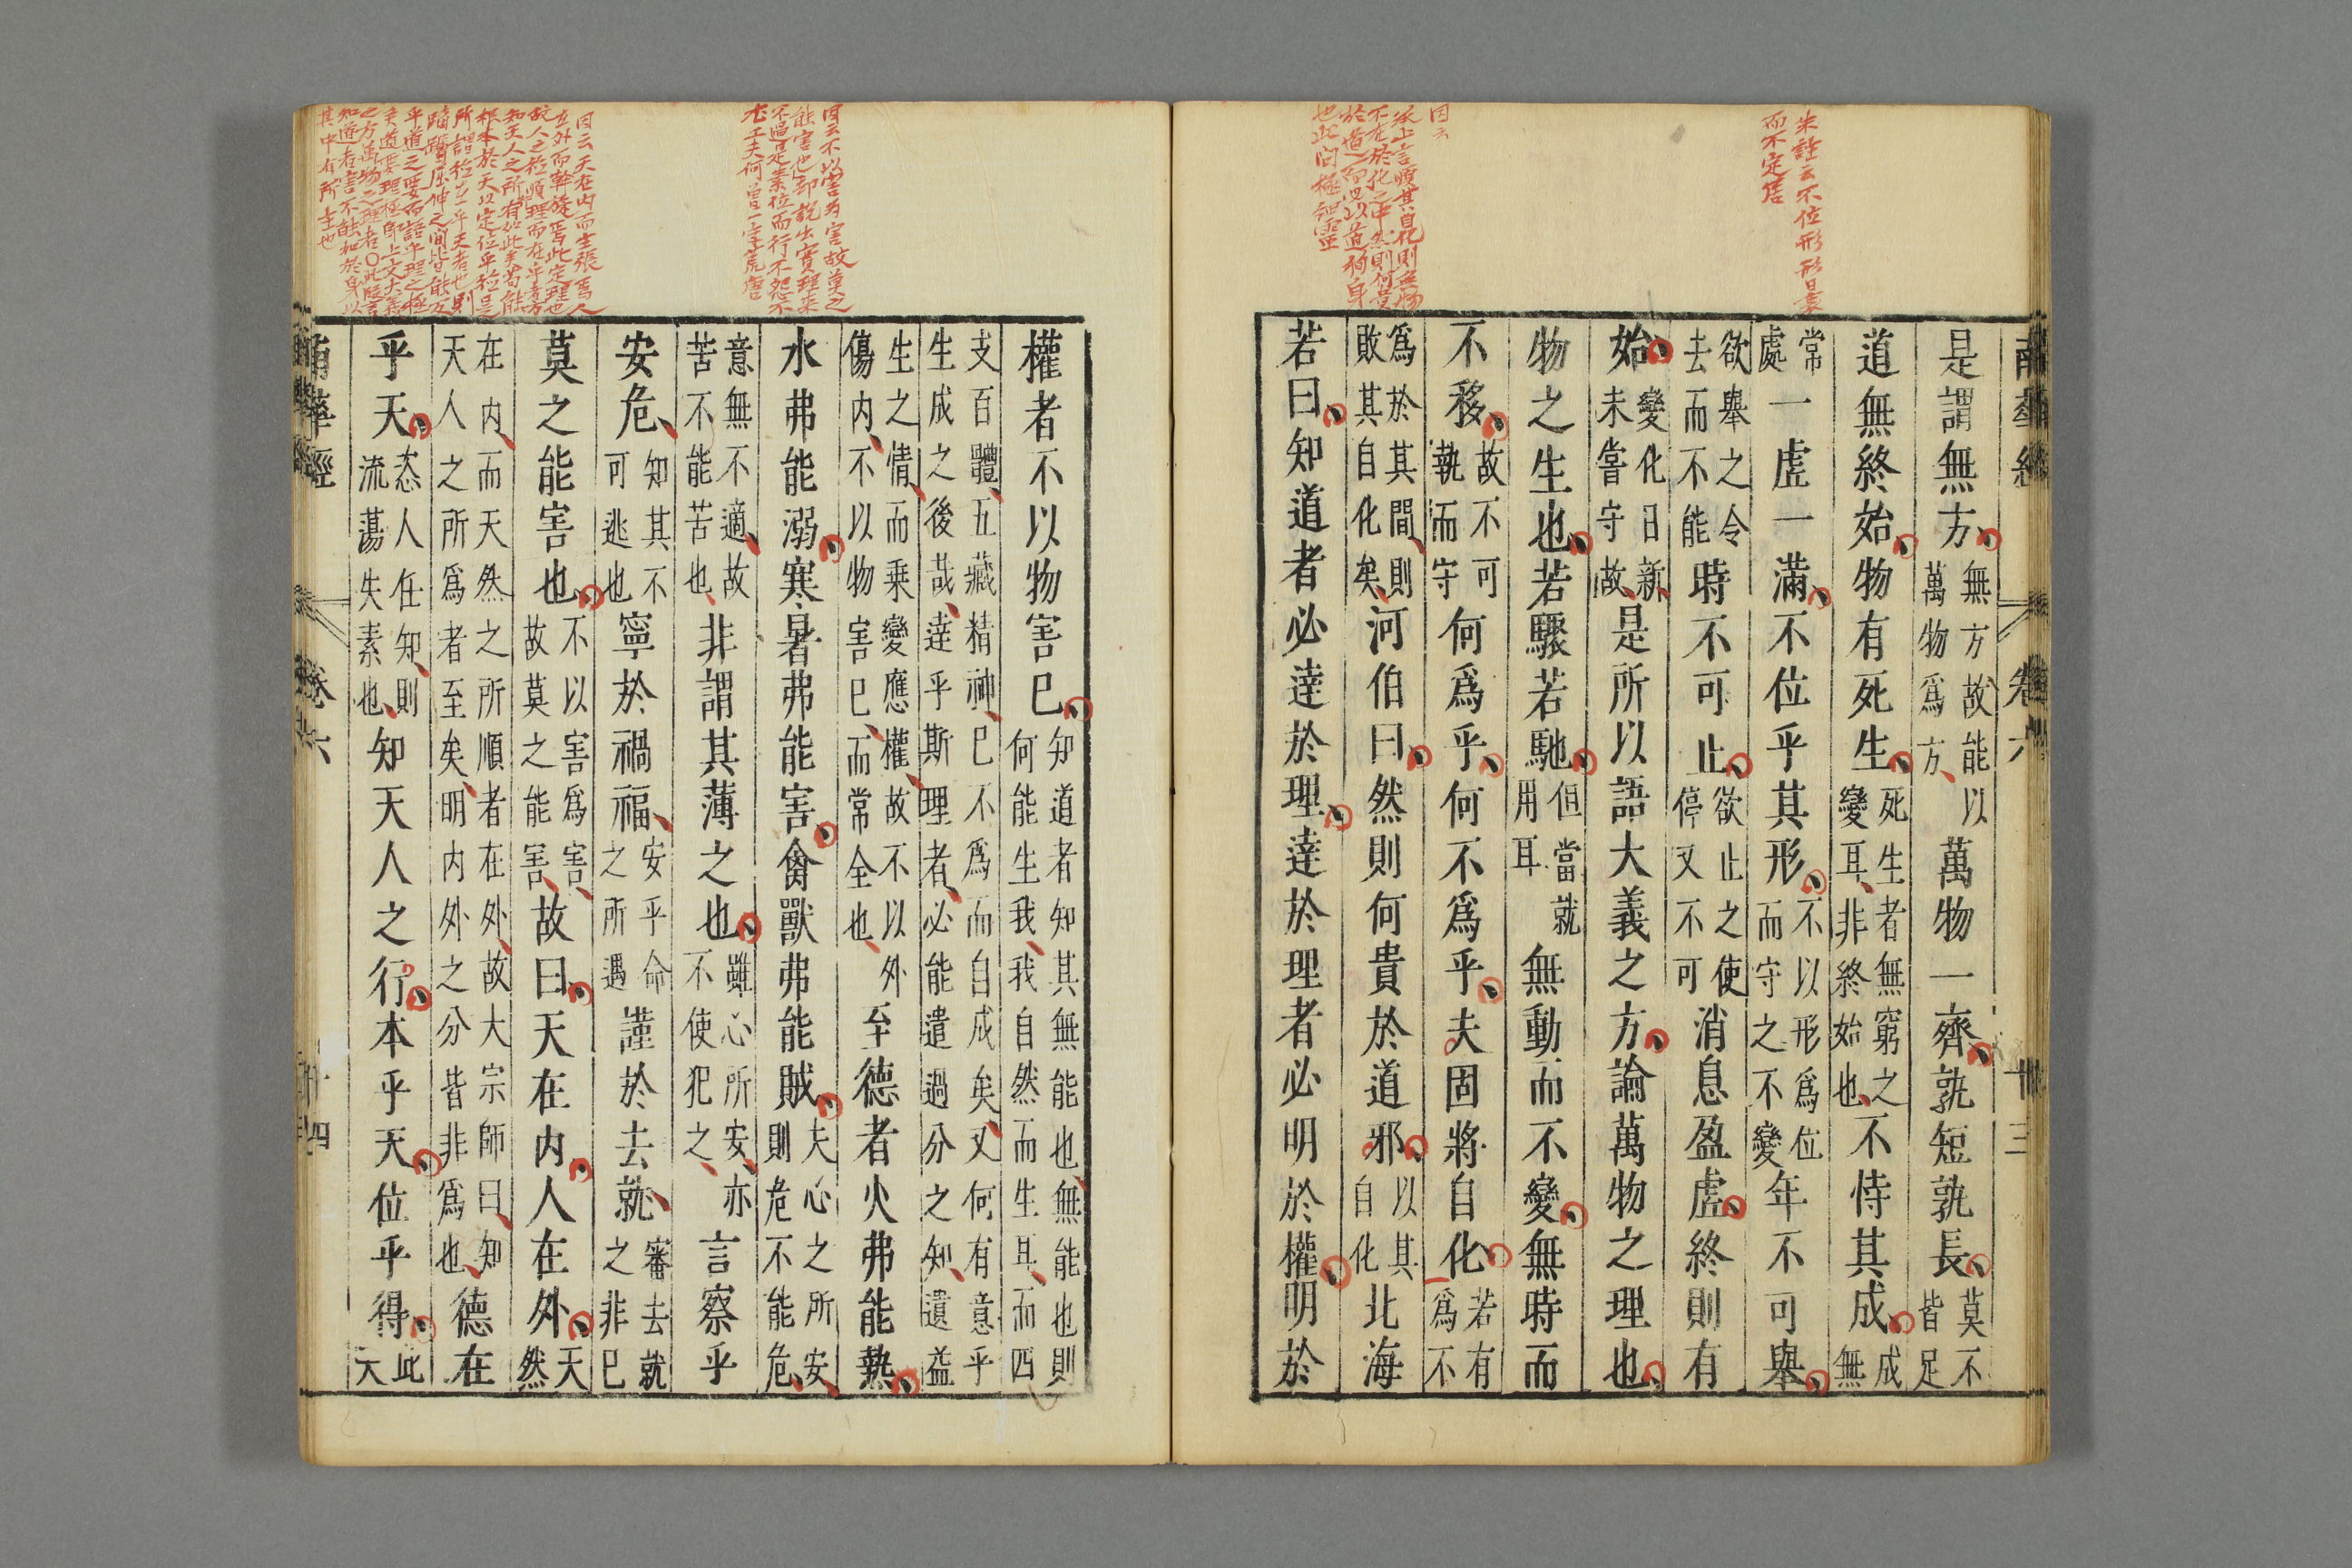 南華經 卷六 廿三
朱註云不位形形日衰
而不定居
是謂無方無方故能以萬物爲方萬物一齊孰短孰長莫不皆足
道無終始物有死生死生者無窮之變耳非終始也不恃其成成無
常處一虛一滿不位乎其形不以形爲位而守之不變年不可舉
欲舉之令去而不能時不可止欲止之使停又不可消息盈虛終則有
始變化日新未嘗守故是所以語大義之方論萬物之理也
物之生也若驟若馳但當就用耳無動而不變無時而
因云
承上言順其自化則無爲
不在於化之中然則何貴
於道而必以道獨身
也此問極細密
不移故不可執而守何爲乎何不爲乎夫固將自化若有爲不
爲於其間則敗其自化矣河伯曰然則何貴於道邪以其自化北海
若曰知道者必達於理達於理者必明於權明於
權者不以物害已知道者知其無能也無能也則何能生我我自然而生耳而四
支百體五藏精神已不爲而自成矣又何有意乎生成之後哉達乎斯理者必能遣過分之知遺益
生之情而乘變應權故不以外傷內不以物害已而常全也至德者火弗能熱
因云不以害爲害故莫之
能害也却說出實理來
不過是素位而行不怨不
尤工夫何曾一字荒唐
水弗能溺寒暑弗能害禽獸弗能賊夫心之所安則危不能危
意無不適故苦不能苦也非謂其薄之也雖心所安亦不使犯之言察乎
安危知其不可逃也寧於禍福安乎命之所遇謹於去就審去就之非已
莫之能害也不以害爲害故莫之能害故曰天在內人在外天然
因云天在內而主張焉人
在外而斡旋焉此定理也
故人之於順理而在乎者方
知天人之所有如此矣苟能
根本於天以定位乎於是
所謂於在乎天者也則
蹢躅屈伸之間皆能反
乎道之要而語乎理之極
矣道要理極即上文大義
之方萬物之理者〇此段言
知道者害不能加於身以
其中有所主也
在內而天然之所順者在外故大宗師曰知天人之所爲者至矣明內外之分皆非爲也德在
乎天恣人任知則流蕩失素也知天人之行本乎天位乎得此天
南華經 卷六 廿四